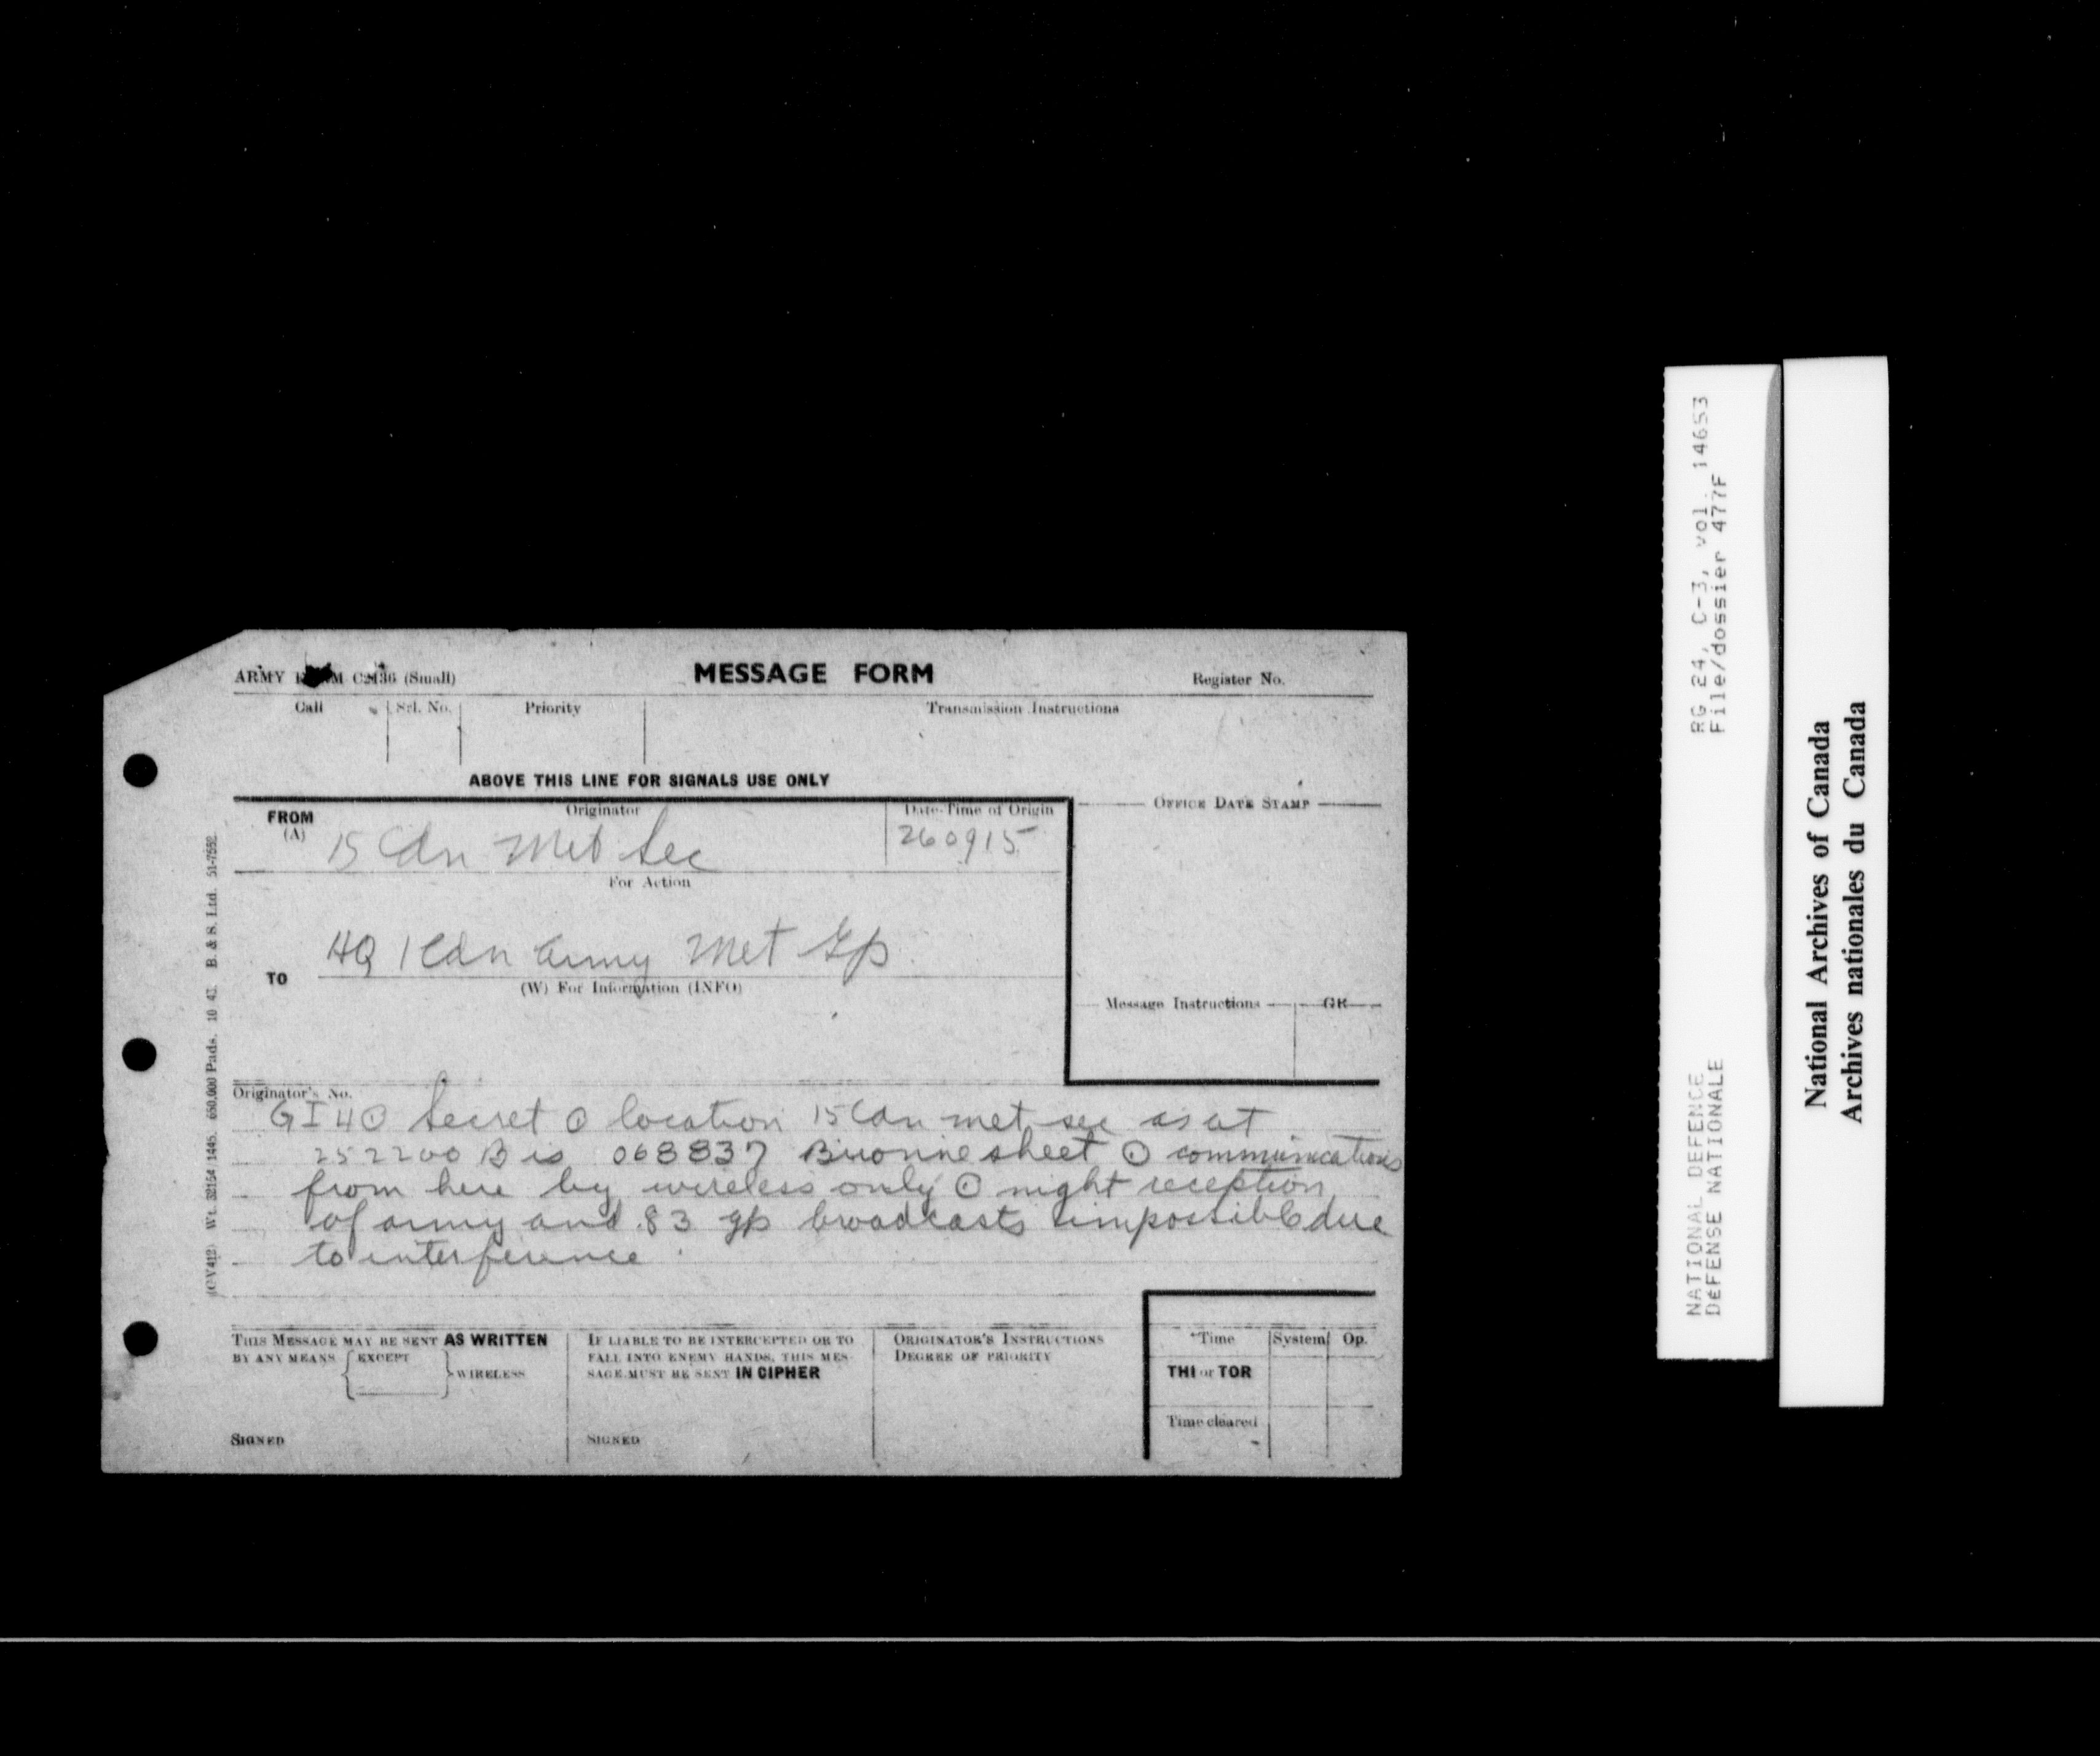 ARMY FORM C2136 (Small)
MESSAGE FORM
Register No.
Call
Srl. No.
Priority
Transmission Instructions
ABOVE THIS LINE FOR SIGNALS USE ONLY
FROM
(A)
Originator
Date-Time of Origin
OFFICE DATE STAMP
15 Cdn Met Sec
260915
For Action
HQ 1 Cdn Army Met Gp
TO
(W) For Information (INFO)
Message Instructions
GR
Originator's No.
GI 4 ⊙ Secret ⊙ location 15 Cdn met sec as at
252200 B is 068837 sheet ⊙ communications
from here by wireless only ⊙ night reception
of army and 83 gp broadcasts impossible due
to interference
THIS MESSAGE MAY BE SENT AS WRITTEN
BY ANY MEANS { EXCEPT } WIRELESS
SIGNED
IF LIABLE TO BE INTERCEPTED OR TO
FALL INTO ENEMY HANDS, THIS MES-
SAGE MUST BE SENT IN CIPHER
SIGNED
ORIGINATOR'S INSTRUCTIONS
DEGREE OF PRIORITY
Time
System
Op.
THI or TOR
Time cleared
(C V 412) Wt. 32154/1445. 650,000 Pads. 10 43. B. & S. Ltd. 51-7552
NATIONAL DEFENCE
DEFENSE NATIONALE
RG 24, C-3, vol. 14653
File/dossier 477F
National Archives of Canada
Archives nationales du Canada